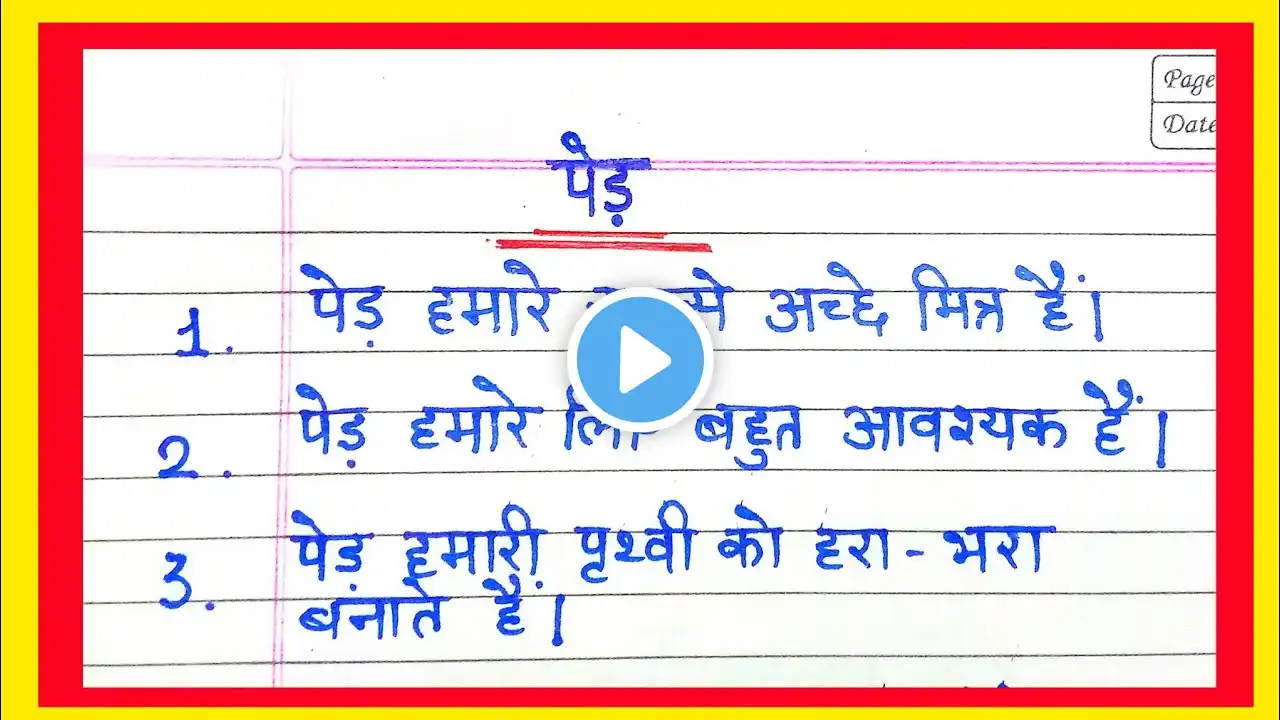 Page
Date
पेड़
1. पेड़ हमारे अच्छे मित्र हैं।
2. पेड़ हमारे बहुत आवश्यक हैं।
3. पेड़ हमारी पृथ्वी को हरा-भरा
बनाते हैं।